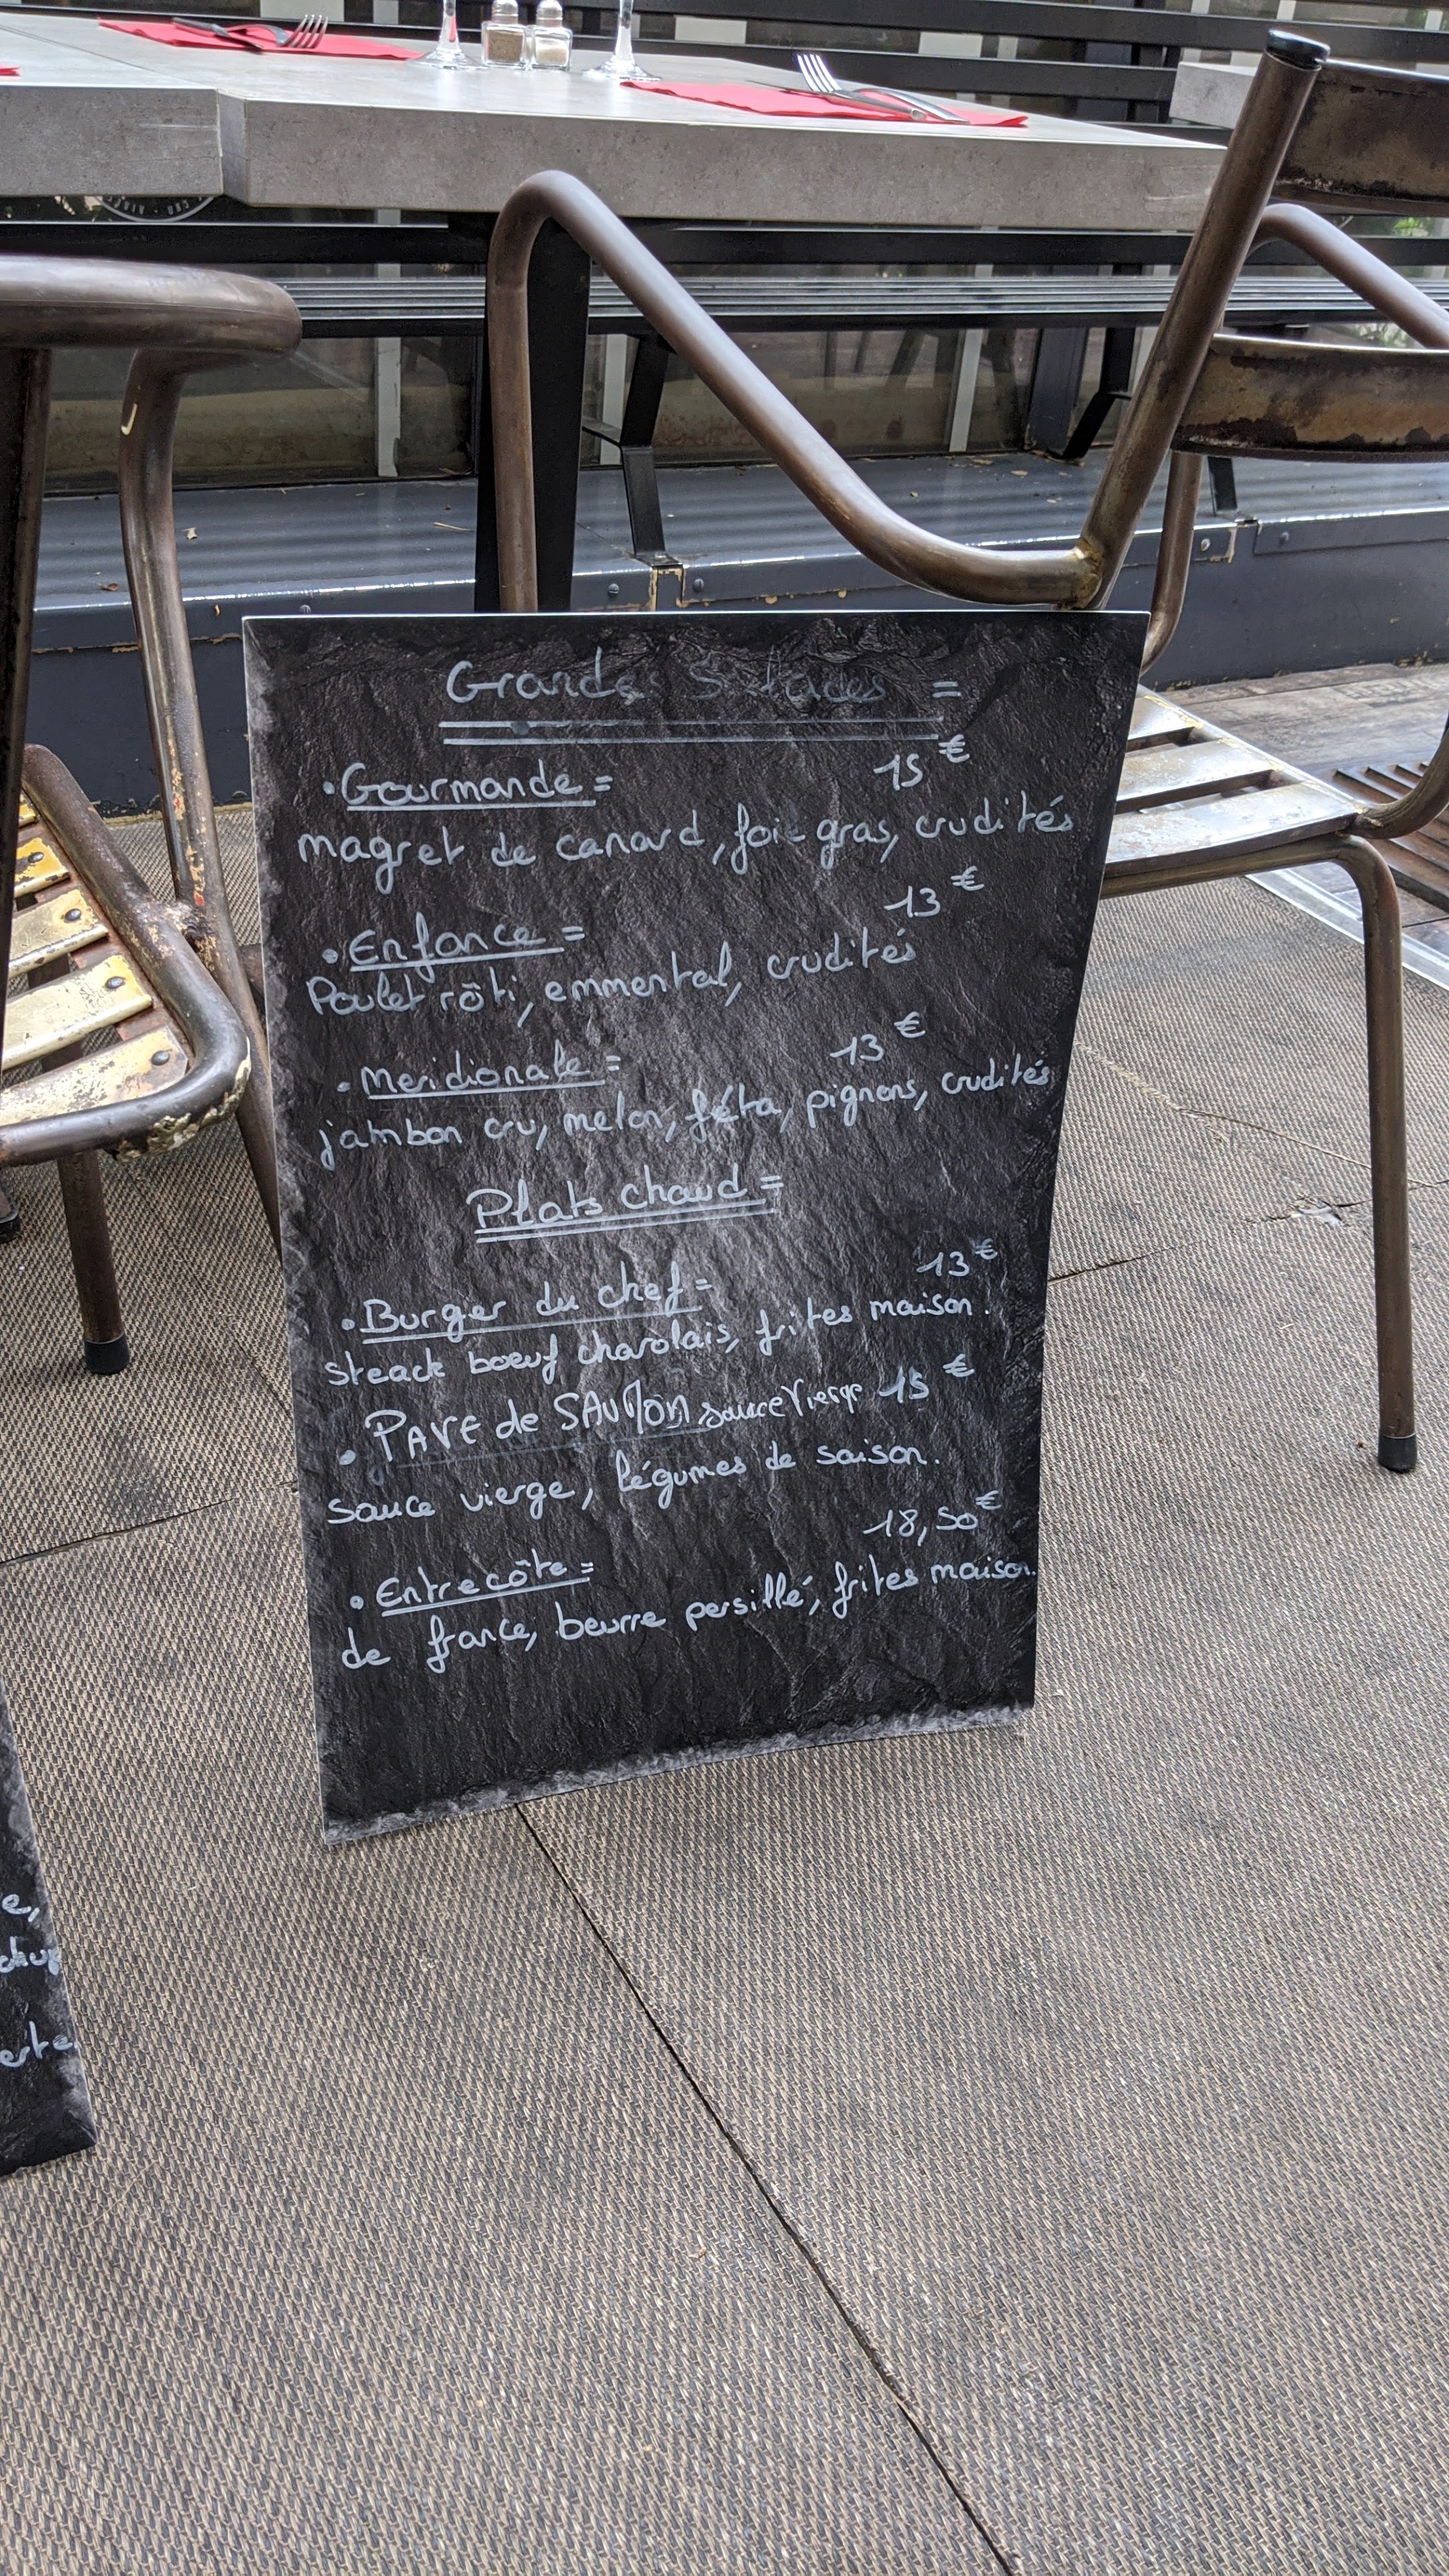 Grandes Salades =
• Gourmande = 15 €
magret de canard, foie gras, crudités
13 €
• Enfance =
Poulet rôti, emmental, crudités
• Meridionale = 13 €
jambon cru, melon, féta, pignons, crudités
Plats chaud =
• Burger du chef = 13 €
steack boeuf charolais, frites maison.
• PAVE de SAUMON sauce Vierge 15 €
sauce vierge, légumes de saison.
18,50 €
• Entrecôte =
de france, beurre persillé, frites maison.